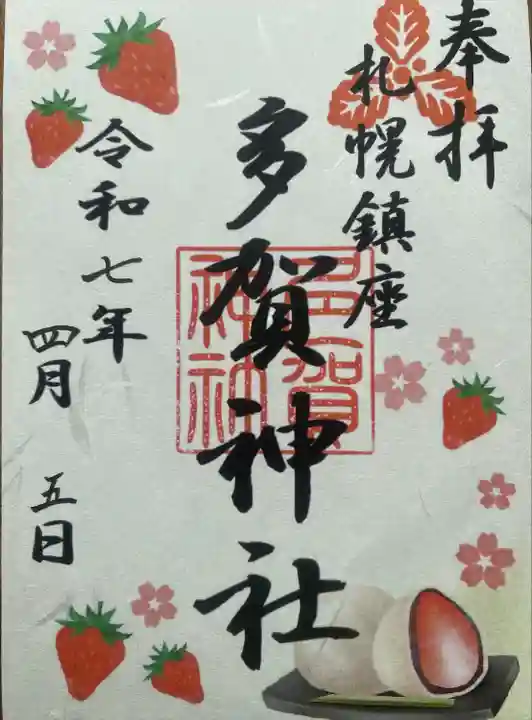 奉拝
札幌鎮座
多賀神社
多賀
神社
令和七年
四月 五日